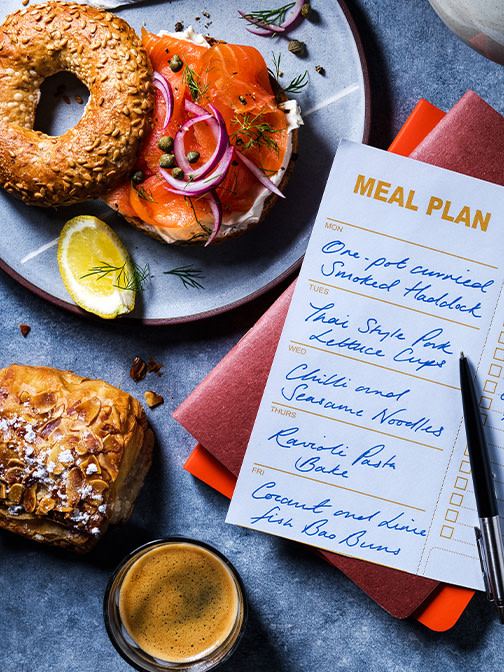 MEAL PLAN
MON
One-pot curried
Smoked Haddock
TUES
Thai Style Pork
Lettuce Cups
WED
Chilli and
Seasame Noodles
THURS
Ravioli Pasta
Bake
FRI
Coconut and Lime
fish Bao Buns